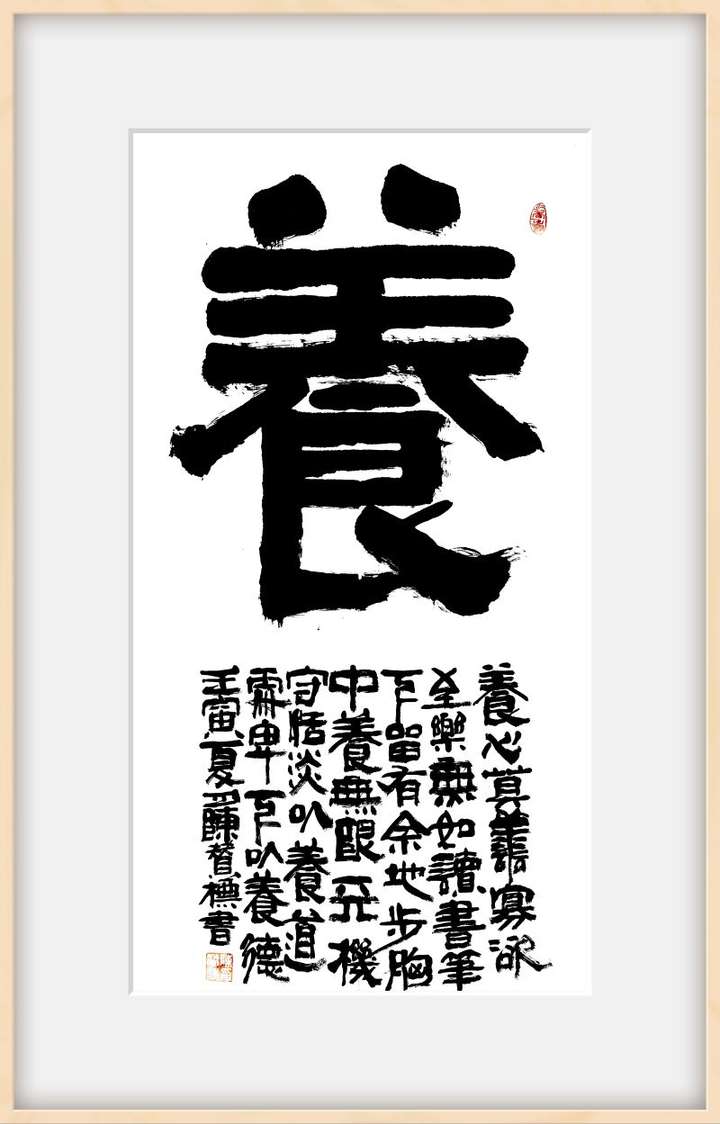 養
養心莫善寡
至樂無如讀書筆
下留有余地步胸
中養無限天機
守恬淡以養道
處卑下以養德
壬寅夏陳贊書